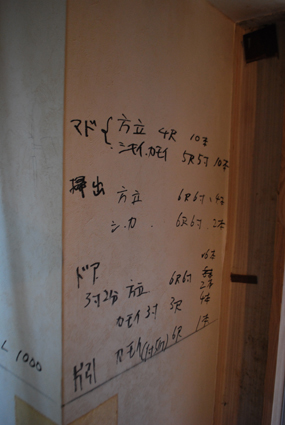 マド { 方立 4尺 10本
シキイ.カモイ 5尺5寸 10本
掃出 方立 6尺6寸 4本
シ.カ. 6尺6寸 2本
6本
ドア
3寸2分 方立 6尺6寸 2本
カモイ 3寸 3尺 4本
片引 カモイ 6尺 1本
L 1000